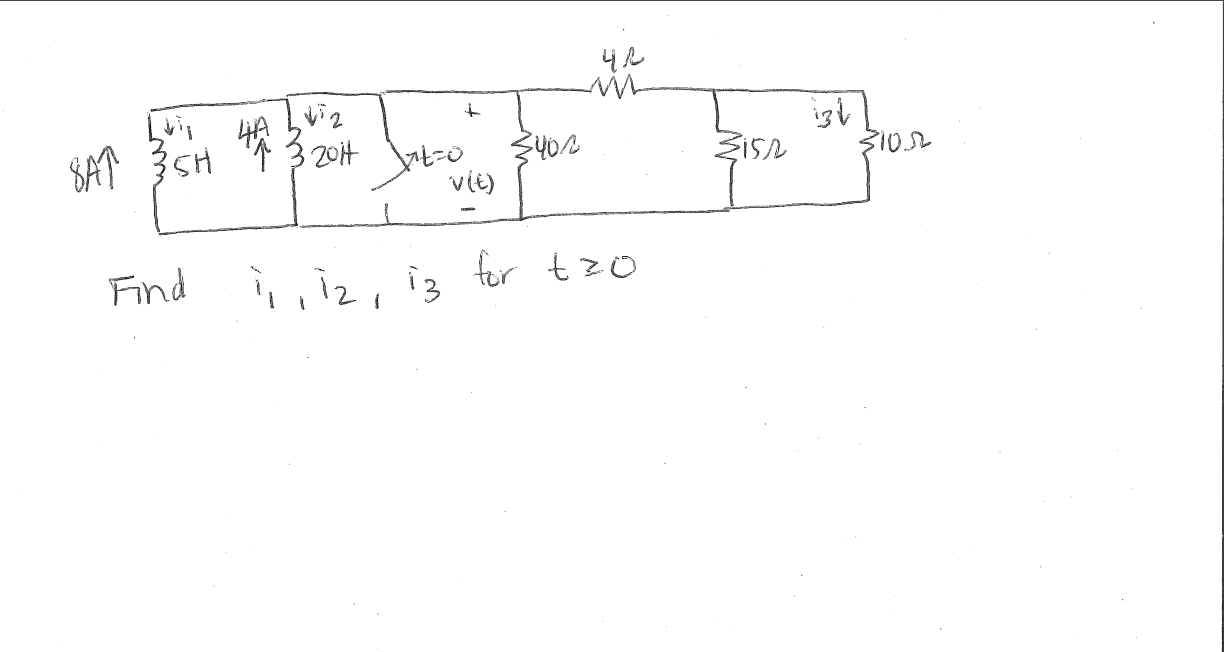 4Ω
8A↑ ↓i₁ 5H 4A ↑ ↓i₂ 20H t=0 + v(t) − 40Ω 15Ω i₃↓ 10Ω
Find i₁, i₂, i₃ for t≥0